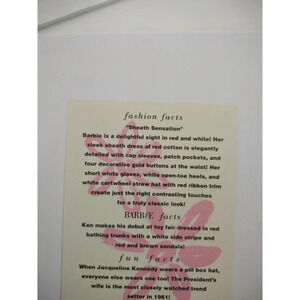 fashion facts
"Sheath Sensation"
Barbie is a delightful sight in red and white! Her
sleek sheath dress of red cotton is elegantly
detailed with cap sleeves, patch pockets, and
four decorative gold buttons at the waist! Her
short white gloves, white open-toe heels, and
white cartwheel straw hat with red ribbon trim
create just the right contrasting touches
for a truly classic look!
BARBIE facts
Ken makes his debut at toy fair dressed in red
bathing trunks with a white side stripe and
red and brown sandals!
fun facts
When Jacqueline Kennedy wears a pill box hat,
everyone else wears one too! The President's
wife is the most closely watched trend
setter in 1961!